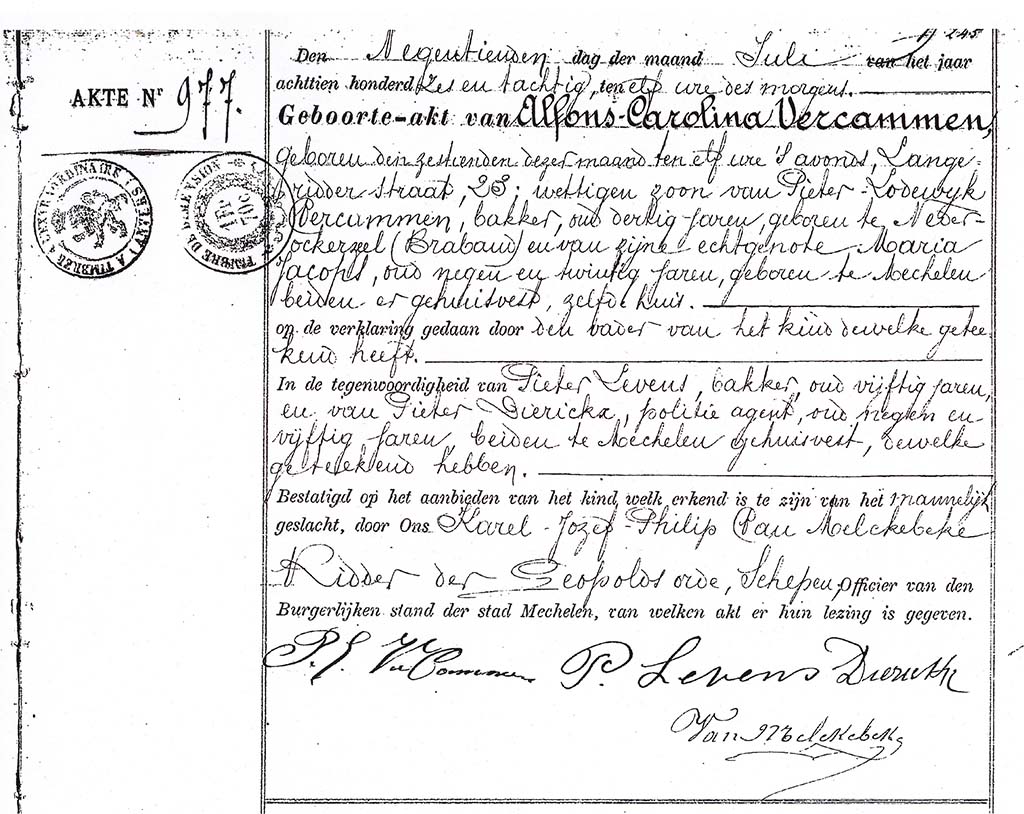 245
Den Negentienden dag der maand Juli van het jaar
achttien honderd Zes en tachtig, ten elf ure des morgens.
AKTE Nr 977.
Geboorte-akt van Alfons-Carolina Vercammen,
geboren den zestienden dezer maand ten elf ure 's avonds, Lange-
ridder straat, 23; wettigen zoon van Pieter-Lodewyk
Vercammen, bakker, oud dertig jaren, geboren te Neder-
ockerzeel (Braband) en van zijne echtgenote Maria
Jacobs, oud negen en twintig jaren, geboren te Mechelen
beiden er gehuisvest, zelfde huis.
op de verklaring gedaan door den vader van het kind dewelke getee-
kend heeft.
In de tegenwoordigheid van Pieter Levens, bakker, oud vijftig jaren,
en van Pieter Dierickx, politie agent, oud negen en
vijftig jaren, beiden te Mechelen gehuisvest, dewelke
geteekend hebben.
Bestatigd op het aanbieden van het kind welk erkend is te zijn van het mannelijk
geslacht, door Ons Karel-Jozef-Philip Van Melckebeke
Ridder der Leopolds orde, Schepen, Officier van den
Burgerlijken stand der stad Mechelen, van welken akt er hun lezing is gegeven.
P. L. VerCammen P. Levens Dierickx
Van Melckebeke